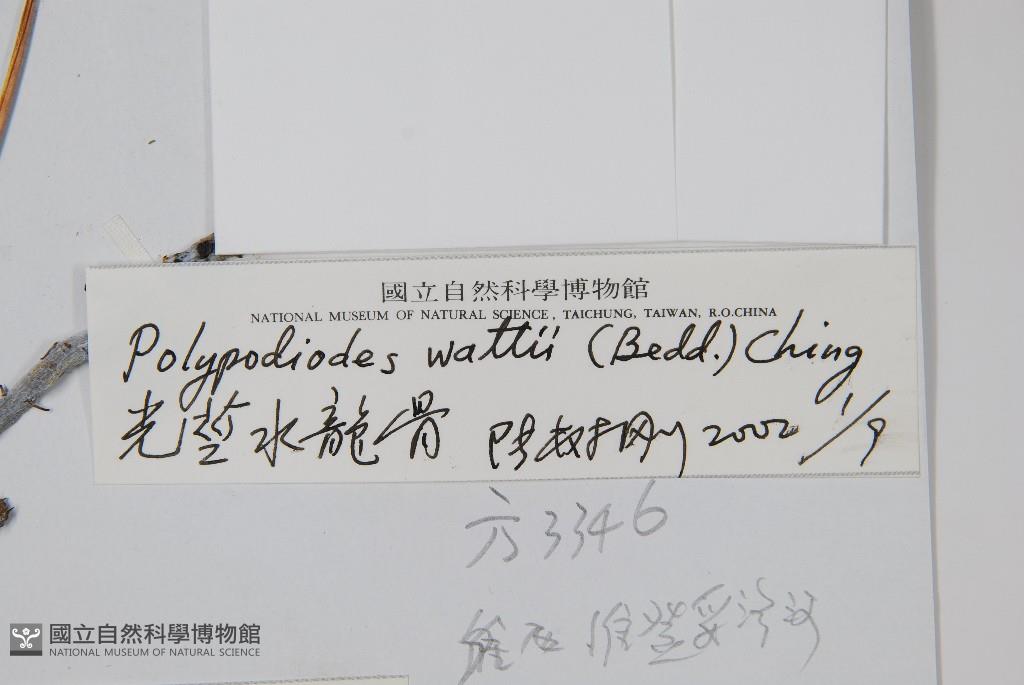 國立自然科學博物館
NATIONAL MUSEUM OF NATURAL SCIENCE, TAICHUNG, TAIWAN, R.O.CHINA
Polypodiodes wattii (Bedd.) Ching
光莖水龍骨 2002 1/9
3346
國立自然科學博物館
NATIONAL MUSEUM OF NATURAL SCIENCE